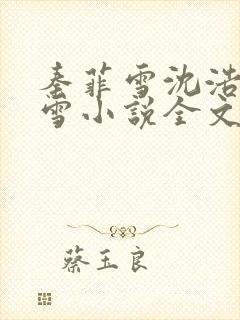 秦菲雪沈浩
雪小说全文
蔡玉良